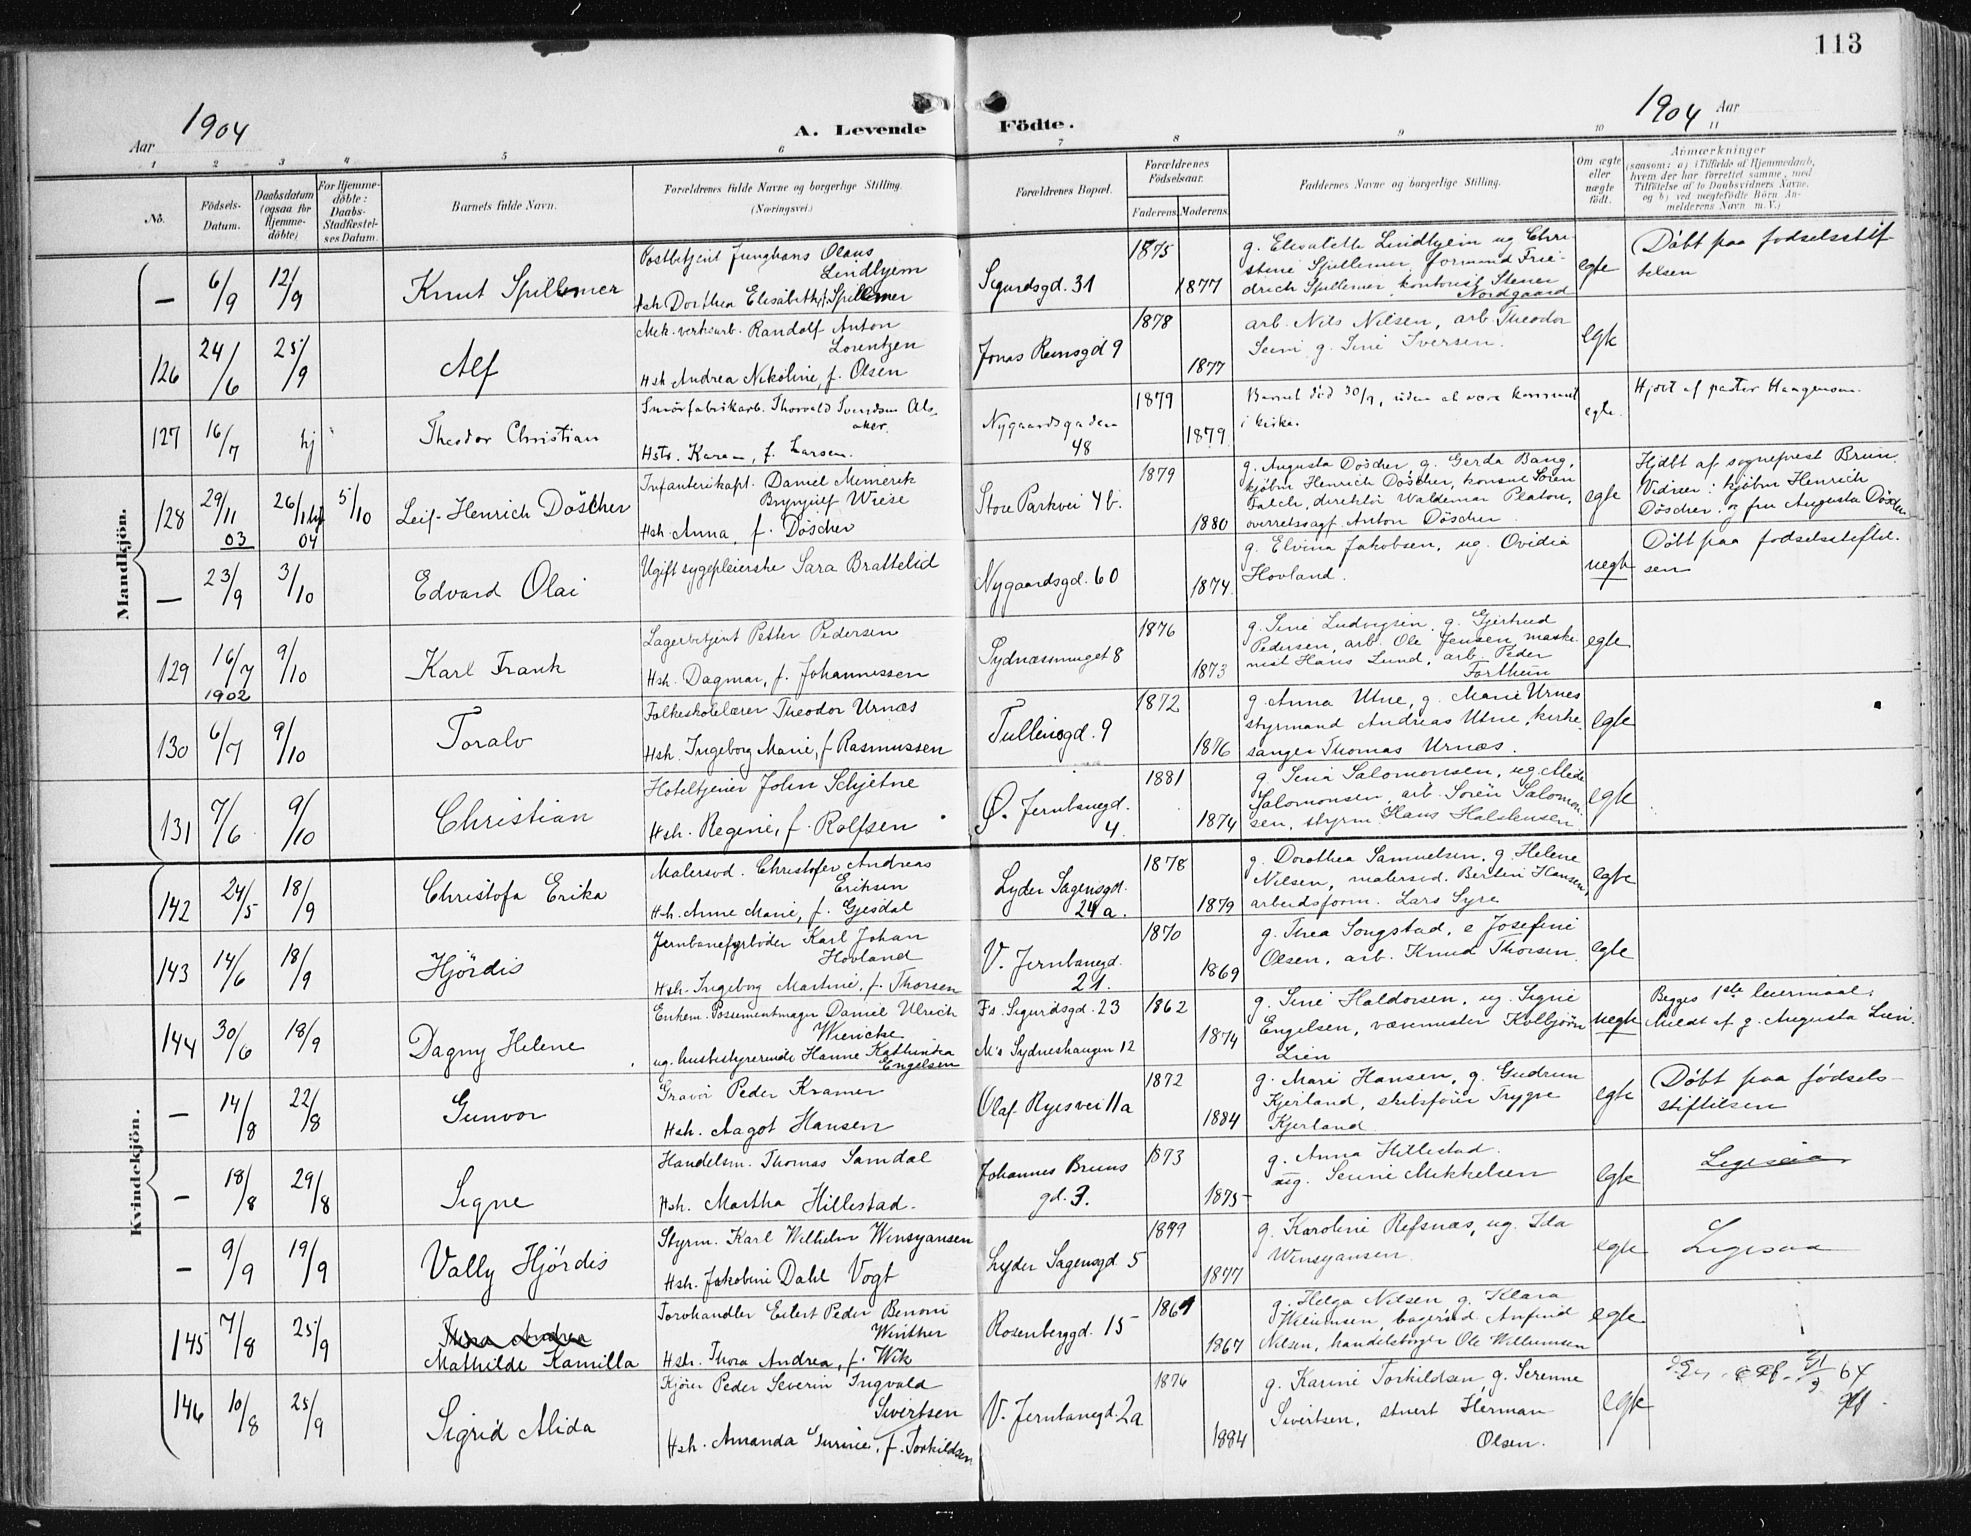 113
Aar 1904
A. Levende Födte.
1904 Aar
1 2 3 4 5 6 7 8 9 10 11
No.
Födsels-Datum.
Daabsdatum (ogsaa for Hjemme-döbte)
For Hjemme-döbte: Daabs-Stadfæstel-ses Datum.
Barnets fulde Navn.
Forældrenes fulde Navne og borgerlige Stilling.
(Næringsvei.)
Forældrenes Bopæl.
Forældrenes Födselsaar.
Faderens. Moderens.
Faddernes Navne og borgerlige Stilling.
Om ægte eller uægte födt.
Anmærkninger
(saasom: a) i Tilfælde af Hjemmedaab,
hvem der har forrettet samme, med
Tilföielse af to Daabsvidners Navne,
og b) ved uægtefödte Börn An-
melderens Navn m. V.)
Mandkjön.
— 6/9 12/9 Knut Spillemer
Postbetjent Junghans Olaus
Lindhjem
Hsh Dorthea Elisabeth f. Spillemer
Sigurdsgd. 31 1875 1877
g. Elisabeth Lindhjem ug Chri-
stine Spillemer, formand Frie-
drich Spillemer, kontorist Stener
Nordgaard
egte
Döbt paa fodselsstif-
telsen
126 24/6 25/9 Alf
Mek. verksarb. Randolf Anton
Lorentzen
Hsh Andrea Nikoline, f. Olsen
Jonas Reinsgd 9 1878 1877
arb. Nils Nilsen, arb. Theodor
Seim g. Sine Iversen.
egte
127 16/7 hj Theodor Christian
Smörfabrikarb. Thorvald Svendsen Als-
aker.
Hstr. Karen, f. Larsen.
Nygaardsgaden
48 1879 1879
Barnet död 30/9, uden at være kommet
i kirke.
egte.
Hjdt af pastor Haagensen.
128 29/11 03 26/1 hj 04 5/10 Leif-Henrich Döscher
Infanterikapt. Daniel Mimerik
Brynjulf Wiese
Hsh. Anna, f. Döscher
Store Parkvei 4b. 1879 1880
g. Augusta Döscher, g. Gerda Bang,
kjöbm Henrich Döscher, konsul Sören
Falch, direktör Waldemar Platou,
overretssagf. Anton Döscher.
egte
Hjdbt af sogneprest Brun.
Vidner: kjöbm Henrich
Döscher og fru Augusta Döscher
— 23/9 3/10 Edvard Olai
Ugift sygepleierske Sara Brattelid
Nygaardsgd. 60 1874
g. Elvina Jakobsen, ug. Ovidia
Hovland.
uegte
Döbt paa fodselsstiftel-
sen
129 16/7 1902 9/10 Karl Frank
Lagerbetjent Petter Pedersen
Hsh. Dagmar, f. Johannessen
Sydnæssmuget 8 1876 1873
g. Sine Ludvigsen, g. Gjertrud
Pedersen, arb. Ole Jensen, maski-
nist Hans Lund, arb. Peder
Fortheim
egte
130 6/7 9/10 Toralv
Folkeskolelærer Theodor Urnæs
Hsh. Ingeborg Marie, f. Rasmussen
Tullinsgd. 9 1872 1876
g. Anna Utne, g. Marie Urnes
styrmand Andreas Utne, kirke-
sanger Thomas Urnæs.
egte
131 7/6 9/10 Christian
Hoteltjener John Schjetne
Hsh. Regine, f. Rolfsen
Ø. Jernbanegd.
4. 1881 1874
g. Sina Salomonsen, ug. Mida
Salomonsen, arb. Sören Salomon-
sen, styrm. Hans Halstensen
egte
Kvindekjön.
142 24/5 18/9 Christofa Erika
Malersvd. Christofer Andreas
Eriksen
Hsh. Anne Marie, f. Gjesdal
Lyder Sagensgd.
24a. 1878 1879
g. Dorothea Samuelsen, g. Helene
Nilsen, malersvd. Bertin Hansen,
arbeidsform. Lars Syre
egte
143 14/6 18/9 Hjördis
Jernbanefyrböder Karl Johan
Hovland
Hsh. Ingeborg Martine, f. Thorsen
V. Jernbanegd.
21. 1870 1869
g. Thea Songstad, e Josefine
Olsen, arb. Knud Thorsen.
egte
144 30/6 18/9 Dagny Helene
Enkem. Possementmager Daniel Ulrich
Wienicke
ug. husbestyrerinde Hanne Kathinka
Engelsen
Fs. Sigurdsgd. 23
M's Sydneshaugen 12 1862 1874
g. Sine Haldorsen, ug. Signe
Engelsen, vænmester Kolbjörn
Lien
uegte
Begges 1ste leiermaal.
Meldt af g. Augusta Lien.
— 14/8 22/8 Gunvor
Gravör Peder Kramer
Hsh. Aagot Hansen
Olaf Ryesvei 11a 1872 1884
g. Mari Hansen, g. Gudrun
Kjerland, skibsförer Trygve
Kjerland
egte
Döbt paa födsels-
stiftelsen
— 18/8 29/8 Signe
Handelsm. Thomas Samdal
Hsh. Martha Hillestad.
Johannes Bruns
gd. 3. 1873 1875
g. Anna Hillestad.
ug. Senne Mikkelsen
egte
Ligesaa
— 9/9 19/9 Vally Hjördis
Styrm. Karl Wilhelm Wensyansen
Hsh. Jakobine Dahl Vogt
Lyder Sagensgd 5 1877
g. Karoline Refsnæs, ug. Ida
Wensyansen.
egte
Ligesaa
145 7/8 25/9 Thora Andrea
Mathilde Kamilla
Torvhandler Eilert Peder Benoni
Winther
Hsh. Thora Andrea, f. Wik
Rosenberggd. 15 1867
g. Helga Nilsen g. Klara
Willumsen, bagersvd Anfind
Nilsen, handelsborger Ole Willumsen
egte
146 10/8 25/9 Sigrid Alida
Kjörer Peder Severin Ingvald
Sivertsen
Hsh. Amanda Gurine, f. Torkildsen
V. Jernbanegd. 2a 1876 1884
g. Karine Torkildsen, g. Serenne
Sivertsen, stuert Herman
Olsen.
egte